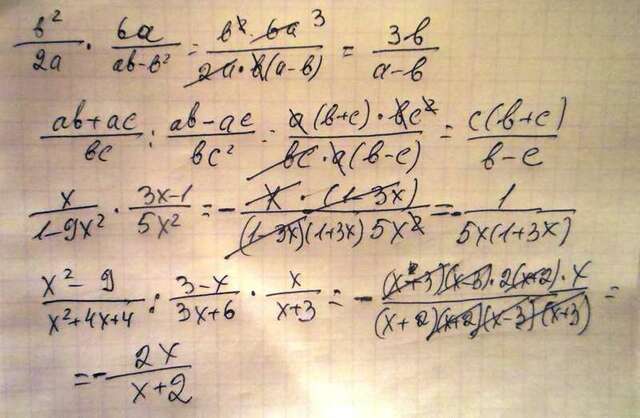 в²/2a · 6a/(ab-в²) = в²·6a 3/(2a·в(a-в)) = 3в/(a-в)
(aв+ac)/(вc) : (aв-ac)/(вc²) = a(в+c)·вc²/(вc·a(в-c)) = c(в+c)/(в-c)
x/(1-9x²) · (3x-1)/(5x²) = - x·(1-3x)/((1-3x)(1+3x)5x²) = - 1/(5x(1+3x))
(x²-9)/(x²+4x+4) : (3-x)/(3x+6) · x/(x+3) = - (x+3)(x-3)·2(x+2)·x/((x+2)(x+2)(x-3)(x+3)) =
= - 2x/(x+2)